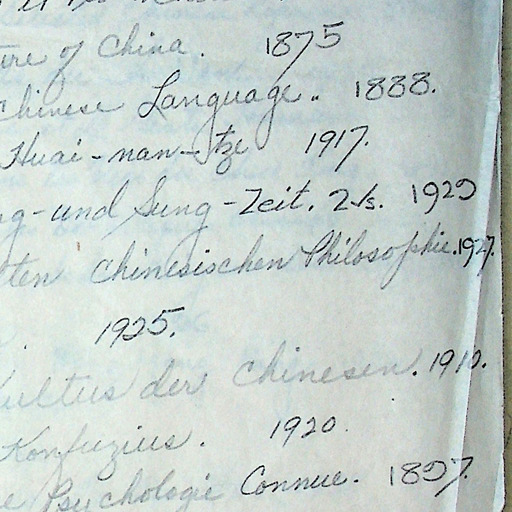 ure of China. 1875
Chinese Language.. 1888.
Huai-nan-tze 1917.
ng-und Sung-Zeit. 2vs. 1929
ten chinesischen Philosophie. 1927.
1925.
Kultus der Chinesen. 1910.
Konfuzius. 1920.
e Psychologie Connue. 1897.